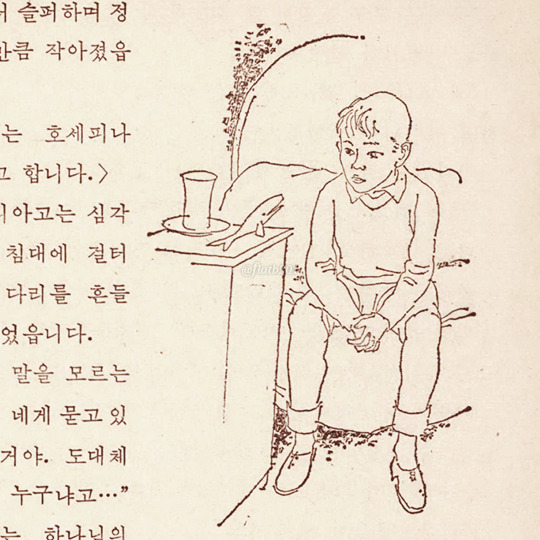 슬퍼하며 정
만큼 작아졌읍
는 호세피나
고 합니다.〉
티아고는 심각
침대에 걸터
다리를 흔들
었읍니다.
말을 모르는
네게 묻고 있
거야. 도대체
누구냐고…”
는 하나님의